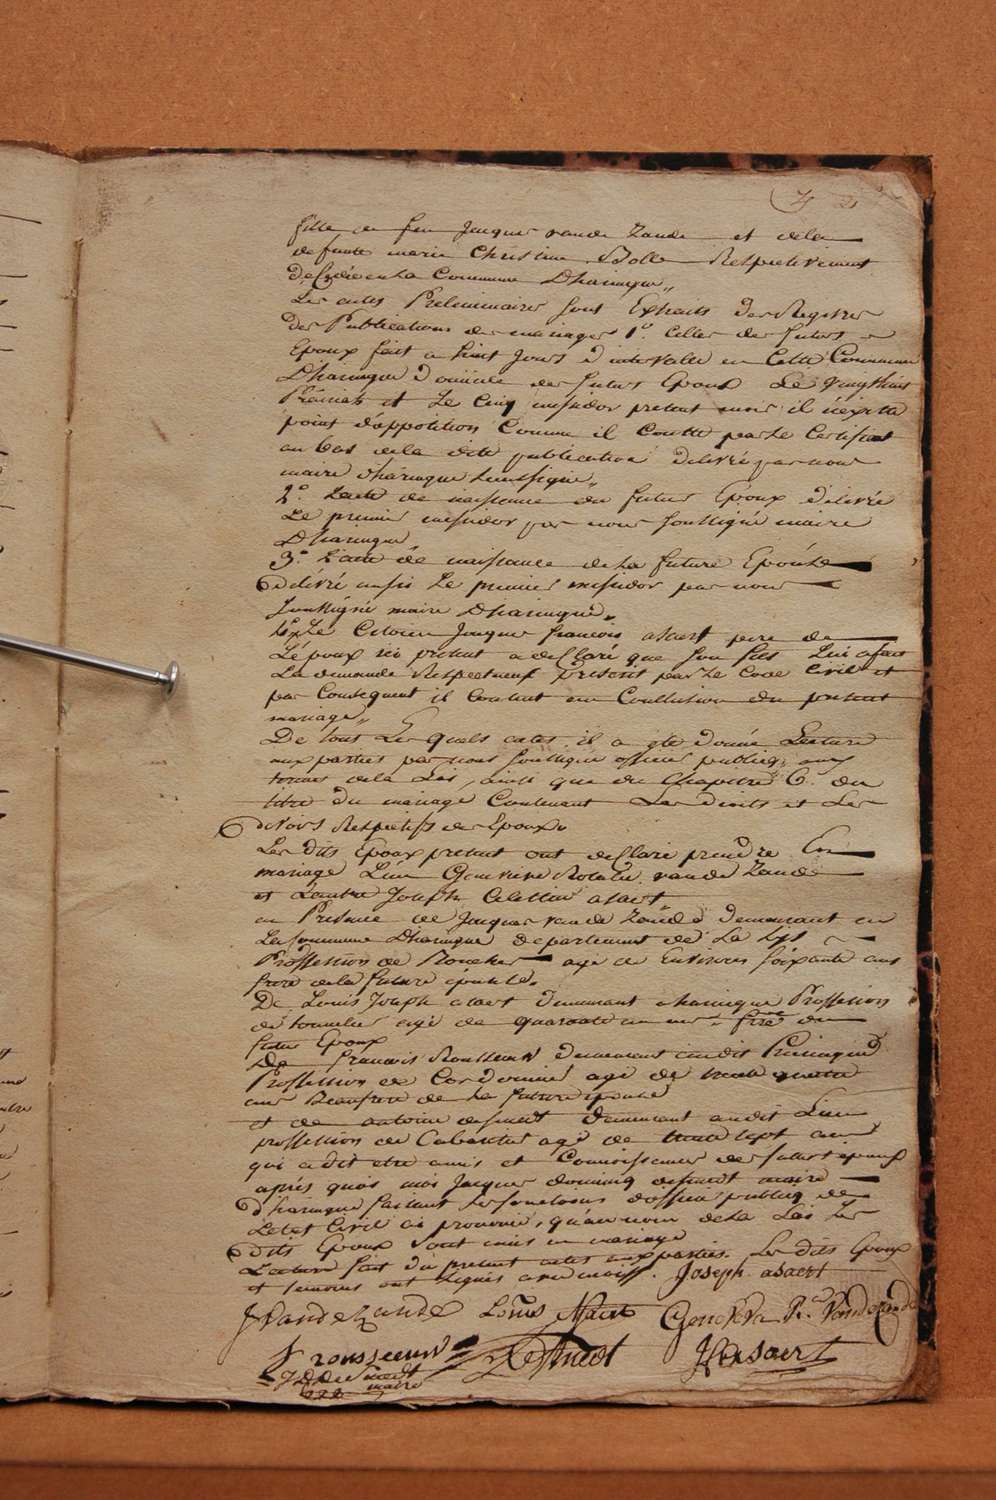 fille de feu Jacques vande Zande et dela
defunte marie Christine Bolle Respectivement
decedée en La Commune Dharingue,,
Les actes Preliminaires sont Extraits des Registres
des Publications de mariages 1° Celles des futurs
Epoux fait a huit Jours d'intervalle en Cette Commune
Dharingue domicile des futurs Epoux Le vingt huit
Prérial et Le Cinq messidor present mois il n'existe
point d'oppotition Comme il Conste par Le Certificat
au bas dela dite publication delivré par nous
maire dharingue soussigné,,
2° Lacte de naissance du futur Epoux délivré
Le premier messidor par nous Soussigné maire
Dharingue
3° L'acte de naissance dela future Epouse
delivré aussi Le premier messidor par nous
Soussigné maire Dharingue,,
4° Le Citoien Jacques francois asaert pere de
Lépoux ici present a déclaré que son fils Lui a fait
La demande Respectueux prescrit par Le Code Civil et
par Consequent il Consent en Conclusion du present
mariage,,
De tout Les quels actes il a été donné Lecture
aux parties par nous soussigné officier publicq aux
termes dela Loi, ainsi que du Chapitre 6. du
titre du mariage Contenant Les droits et Les
devoirs Respectifs des Epoux,,
Les dits Epoux present ont declaré prendre En
mariage L'un Genevieve Rosalie vande Zande
et Lautre Joseph Celestin asaert
en Presence de Jacques vande Zande demeurant en
La Commune Dharingue departement de La Lys
Proffession de age de Environs soixante ans
frere dela future épouse.
De Louis Joseph asaert demeurant a haringue Proffession
de tonnelier agé de quarante un ans, frère du
futur Epoux
De francois Rousseeuw demeurant audit
Proffession de Cordonnier agé de trente quatre
ans Beaufrere de La future épouse
et de antoine desmedt demeurant audit Lieu
proffession de Cabaretier agé de trente sept ans
qui a dit etre amis et Connoissances des futurs epoux
après quoi moi Jacques dominiq desmedt maire
dharingue faisant Les fonctions d'officier publicq de
Letat Civil ai prononcé, qu'au nom dela Loi Les
dits Epoux sont unis en mariage
Lecture fait du present actes aux parties. Les dits Epoux
et temoins ont signés avec moi. Joseph asaert
J Vande Zande Louis Asaert Genoveva R. Vandezande
F rousseeuw Desmedt J F Asaert
J D Desmedt
maire